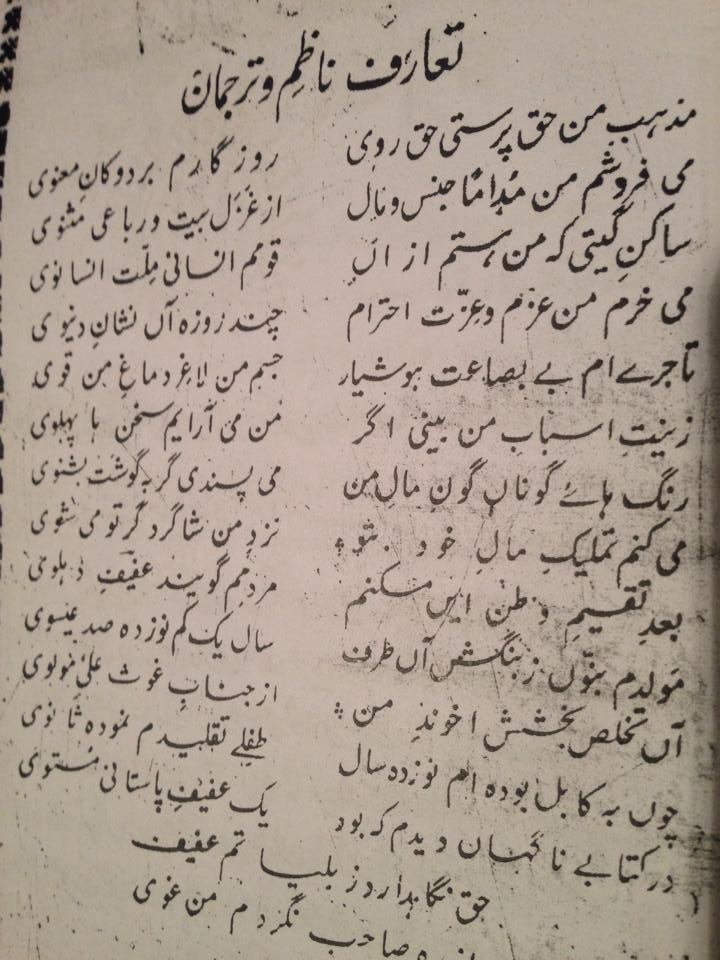 تعارف ناظم و ترجمان
مذہبِ من حق پرستی حق روی
روزگارم بر دوکانِ معنوی
می فروشم من مُداماً جنس و مال
از غزل بیت و رباعی مثنوی
ساکنِ گیتی کہ من ہستم از اں
قومم انسانی مِلّت انسانوی
می خرم من عزم و عِزّت احترام
چند روزہ آں نشانِ دنیوی
تاجرے ام بے بضاعت ہوشیار
جسمِ من لاغر دماغِ من قوی
زینتِ اسبابِ من بینی اگر
من می آرایم سخن با پہلوی
رنگ ہائے گوناں گونِ مالِ من
می پسندی گر بہ گوشت بشنوی
می کنم تملیکِ مالِ خود
نزدِ من شاگرد گر تو می شوی
بعدِ تقسیمِ وطن ایں مسکنم
مردمم گویند عفیفِ دہلوی
مَولدم بنّوں ز بنگش آں طرف
سال یک کم نوزدہ صد عیسوی
آں تخلص بخشش اخوندِ من
از جنابِ غوث علی مولوی
چوں بہ کابل بودہ ام نوزدہ سال
طفلے تقلیدم نمودہ ثانوی
در کتابے ناگہاں دیدم کہ بود
یک عفیفِ پاستانی مُستوی
حق نگاہدارد ز بلیاتم عفیف
صاحب نگردم من غوی